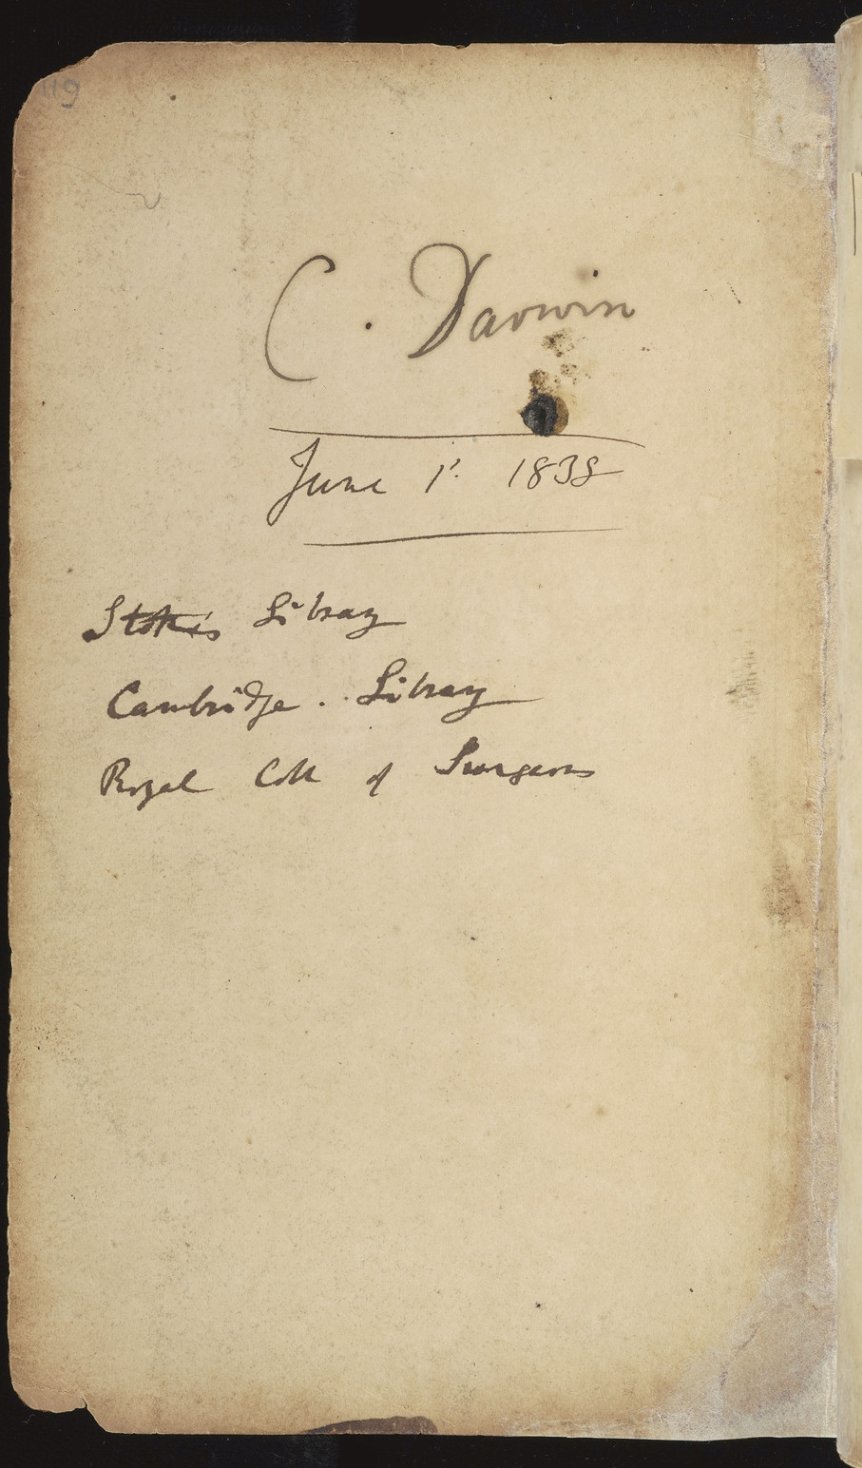 119
C. Darwin
June 1. 1838
Stokes Library
Cambridge. . Library
Royal Coll of Surgeons